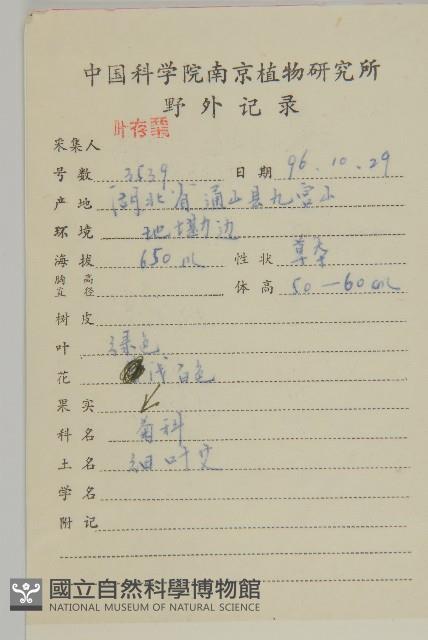 中国科学院南京植物研究所
野外记录
采集人 叶存粟
号数 3539 日期 96.10.29
产地 湖北省通山县九宫山
环境 地塴边
海拔 650m 性状 草本
胸高直径 体高 50—60cm
树皮
叶 绿色
花 浅白色
果实
科名 菊科
土名 细叶艾
学名
附记
國立自然科學博物館
NATIONAL MUSEUM OF NATURAL SCIENCE